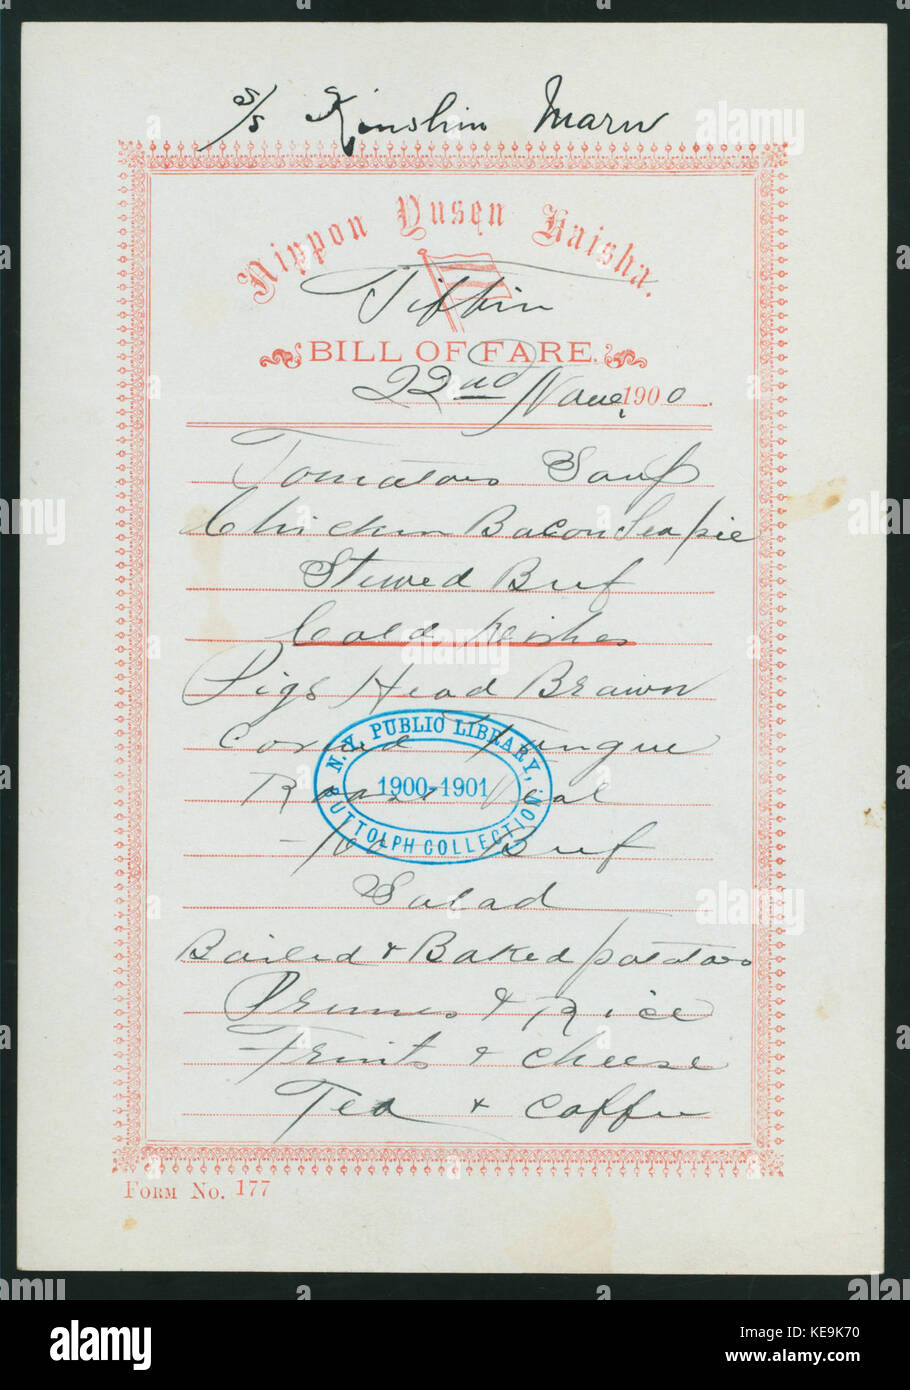 S/S Kinshiu Maru
Nippon Yusen Kaisha.
Tiffin
BILL OF FARE.
22nd Nove, 1900
Tomatoes Soup
Chicken Bacon Sea pie
Stewed Beef
Cold Dishes
Pigs Head Brawn
Corned Tongue
Roast Veal
Beef
Salad
Boiled & Baked potatoes
Prunes & Rice
Fruits & cheese
Tea & Coffee
N.Y. PUBLIC LIBRARY,
1900-1901
BUTTOLPH COLLECTION.
FORM NO. 177
alamy
Image ID: KE9K70
www.alamy.com